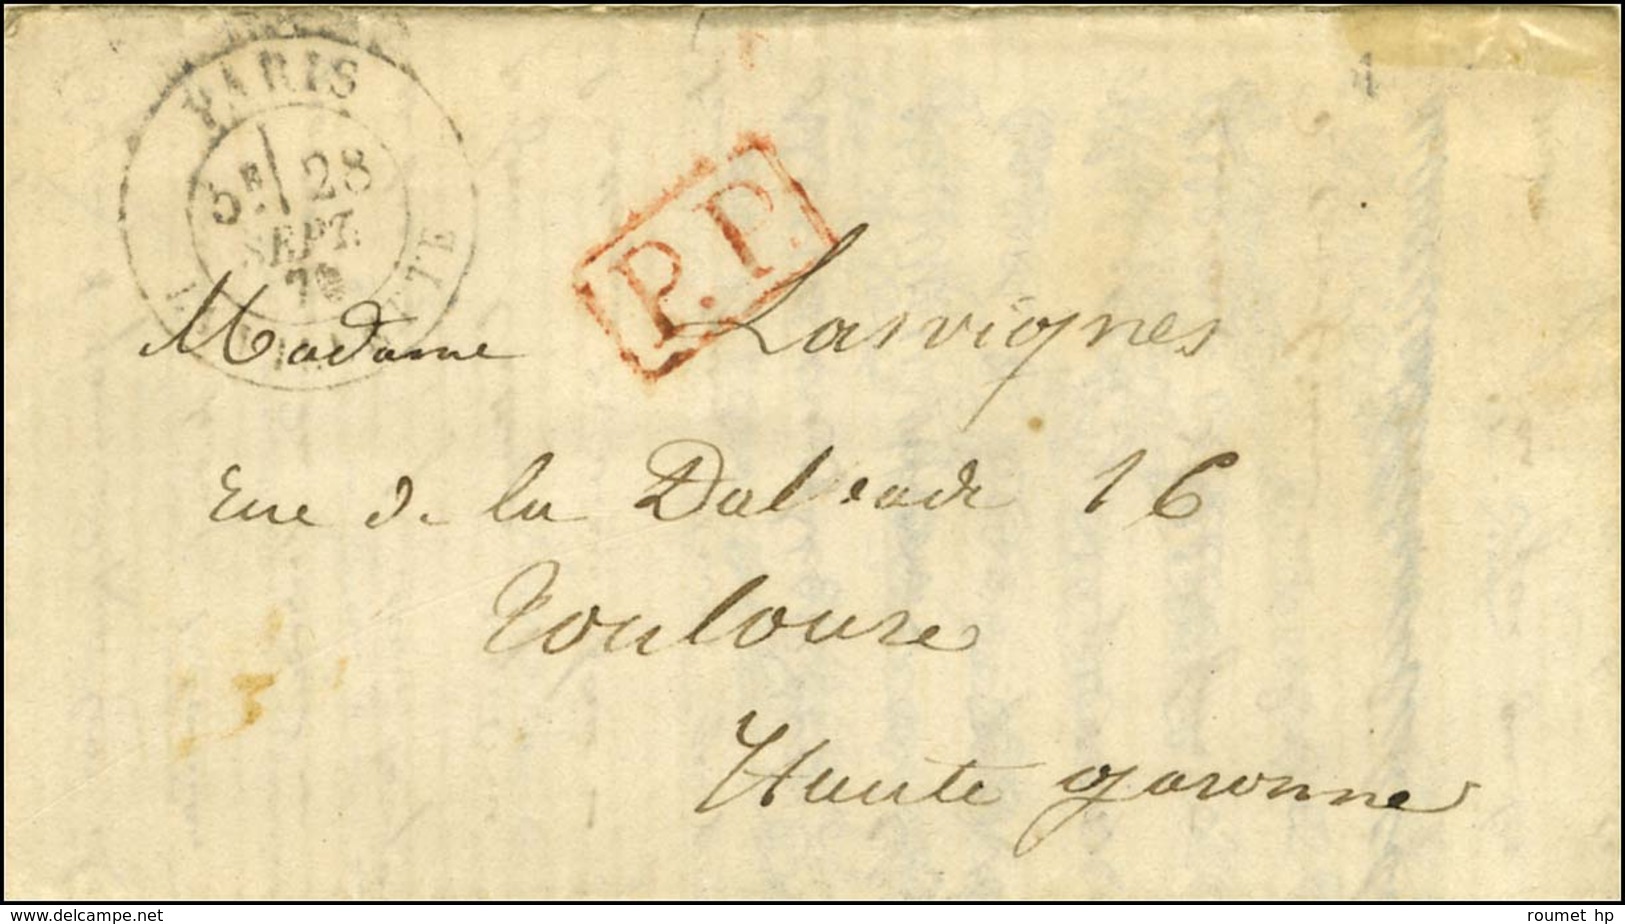 PARIS
5E 28
SEPT.
70
P.P.
Madame Lasvignes
rue de la Dalbade 16
Toulouse
Haute garonne
www.delcampe.net
roumet hp